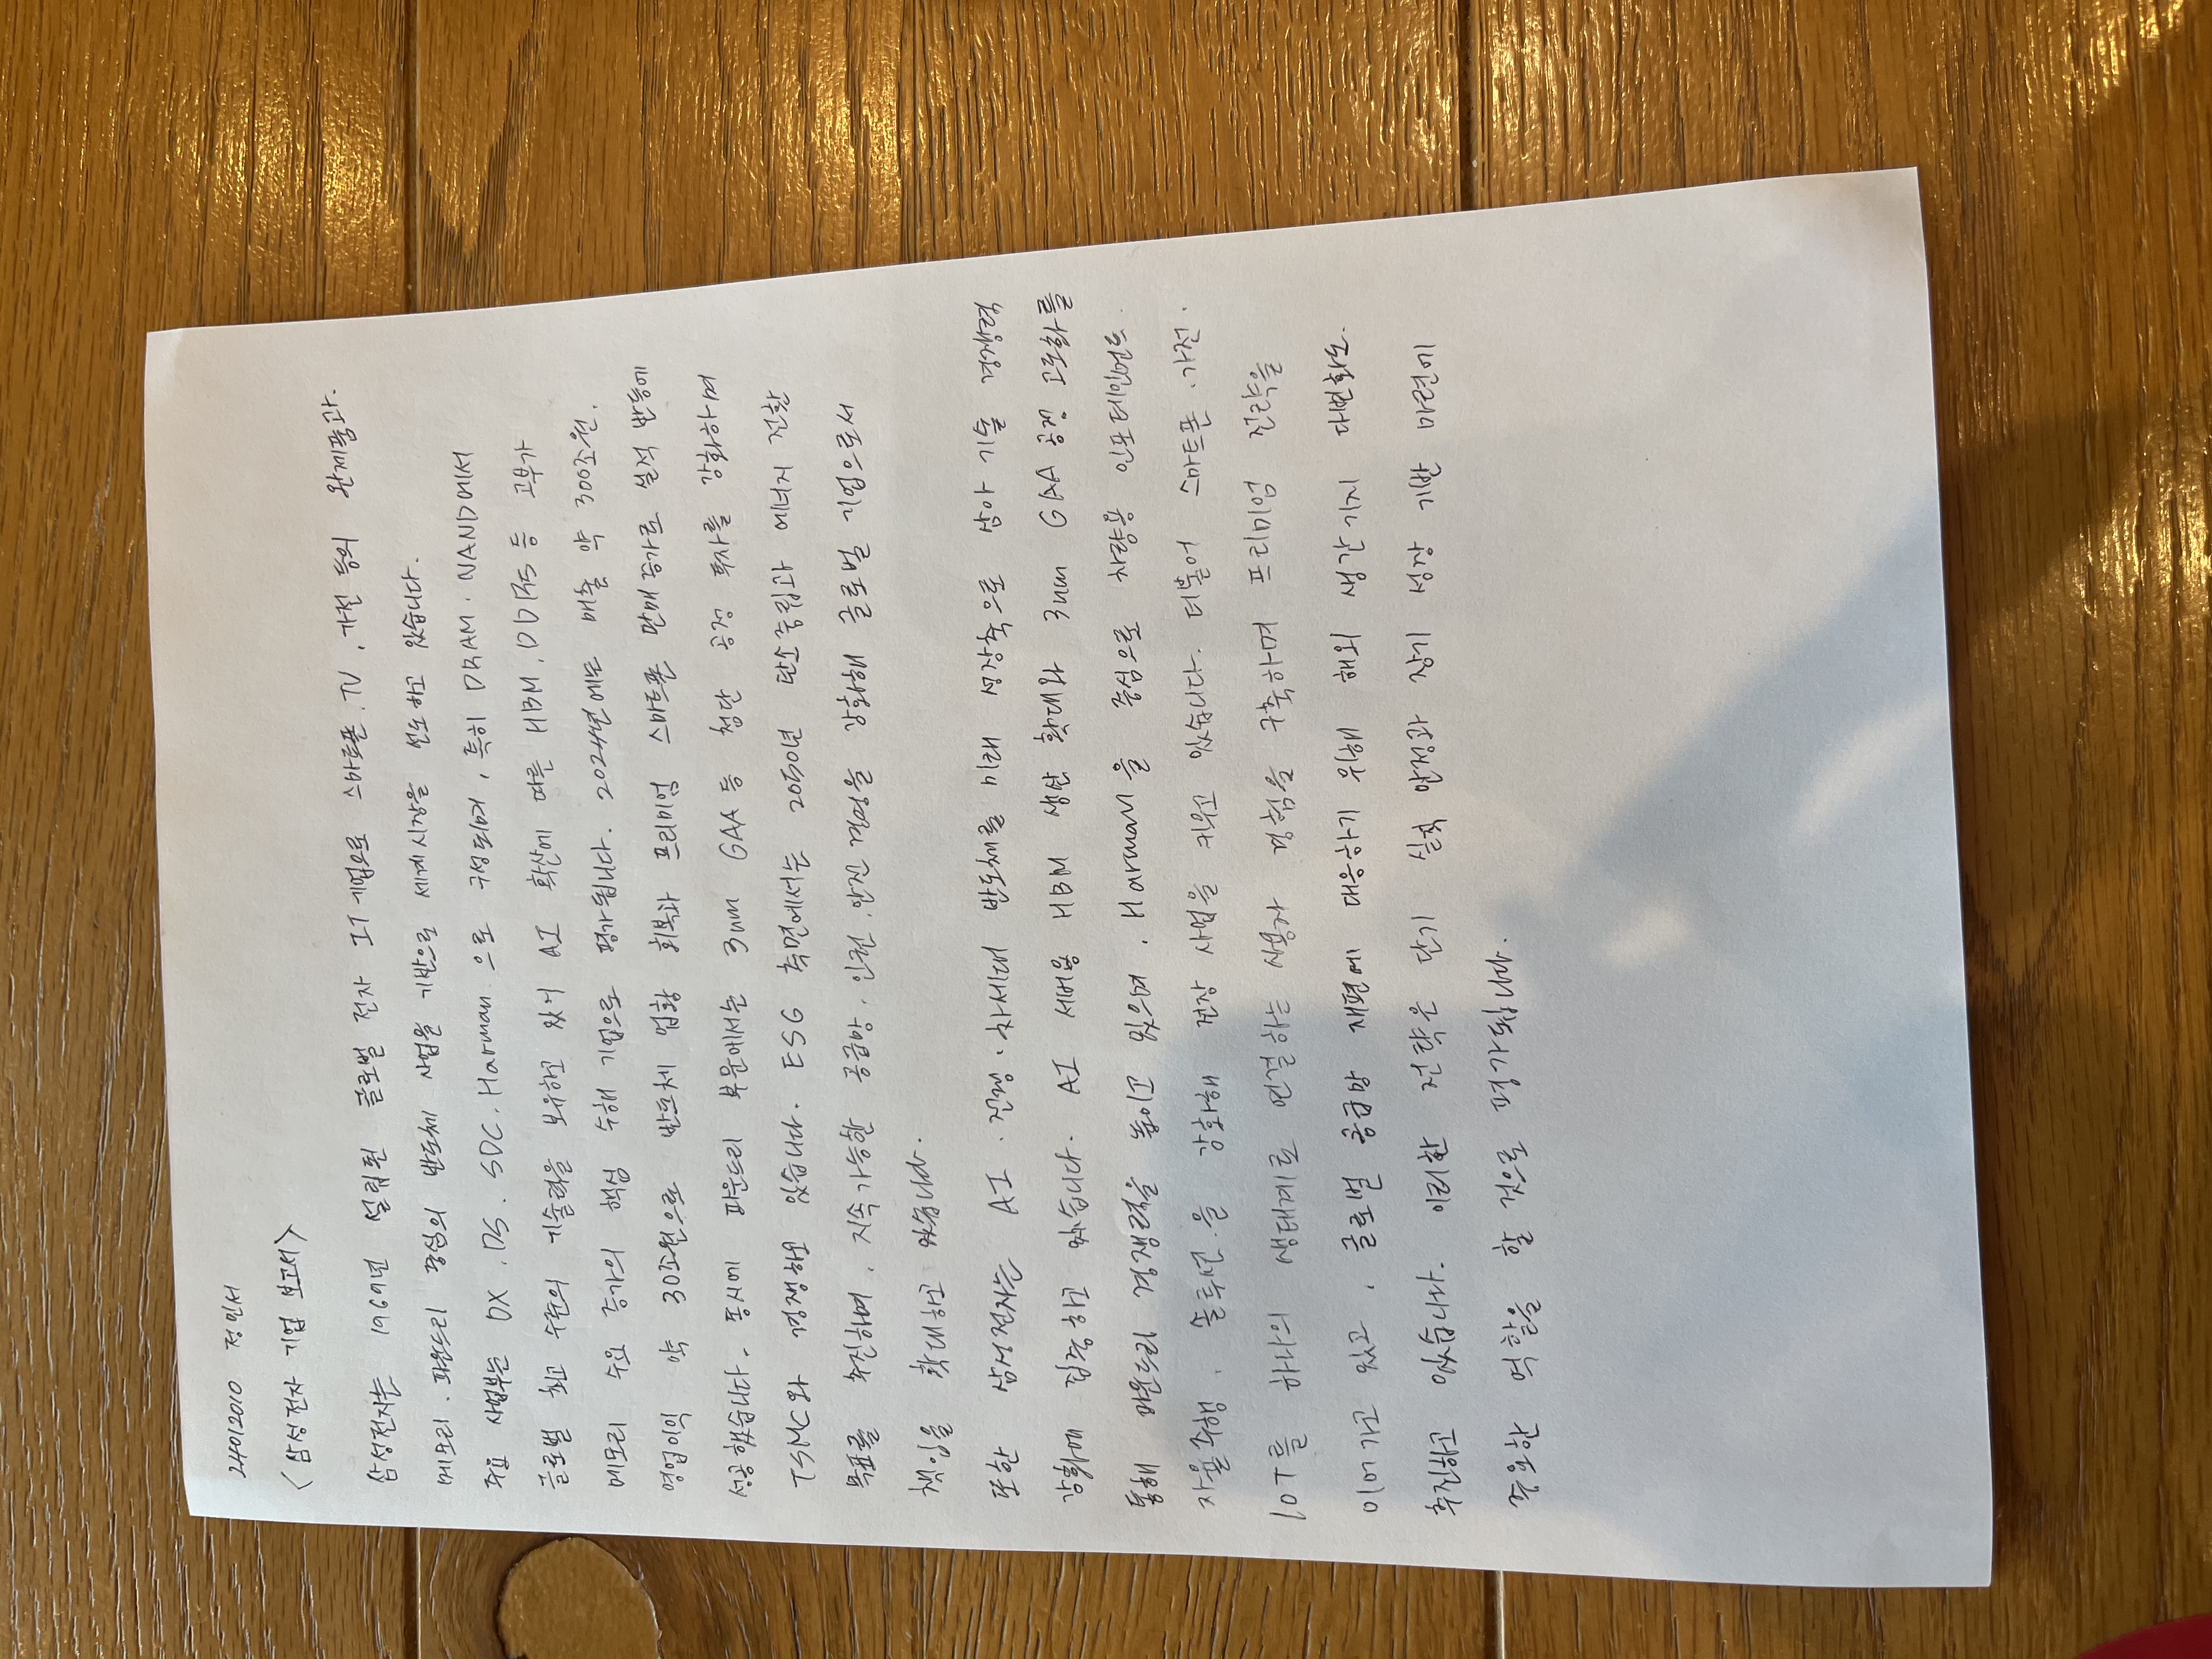 24012010 정민서
<삼성전자 기업 보고서>
삼성전자는 1969년 설립된 글로벌 전자 IT기업으로 스마트폰, TV, 가전 등의 완제품과
메모리, 파운드리 중심의 반도체 사업을 기반으로 세계시장을 선도하고 있습니다.
주요 사업부는 DX, DS, SDC, Harman 으로 구성되며, 특히 DRAM, NAND에서
글로벌 최고 수준의 기술력을 보유하고 있어 AI 확산에 따른 HBM, DDR5 등 고부가
메모리 수요 증가의 핵심 수혜 기업으로 평가됩니다. 2024년에는 매출 약 300조원,
영업이익 약 30조원으로 반도체 업황 회복과 프리미엄 스마트폰 판매증가로 실적 반등에
성공했습니다. 동시에 파운드리 부문에서는 3nm GAA 등 첨단 공정 투자를 강화하며
TSMC와 경쟁하고 있습니다. ESG 측면에서는 2050년 탄소중립과 에너지 전환
목표를 추진하며, 지속가능한 공급망, 인권, 안전 경영을 강화해 글로벌 기업으로서
책임을 확대하고 있습니다.
또한 삼성전자는 AI, 전장, 차세대 반도체를 미래 성장축으로 삼아 기술 경쟁력
강화에 집중하고 있습니다. AI 서버용 HBM 생산 확대와 3nm GAA 공정 고도화를
통해 파운드리 경쟁력을 높이고 있으며, Harman을 중심으로 차량용 인포테인먼트,
자율주행, 솔루션을 강화해 전장 사업을 키우고 있습니다. 더불어 스마트폰, 가전,
IoT를 하나의 생태계로 연결하는 사용자 경험을 구축하며 프리미엄 전략을
이어가고 있고, 글로벌 공급망 재편에 대응하기 위해 해외 생산기지 다변화도
추진하고 있습니다. 이러한 전략은 단기 실적 안정과 장기 성장 기반 마련에
중요한 역할을 할 것으로 평가됩니다.